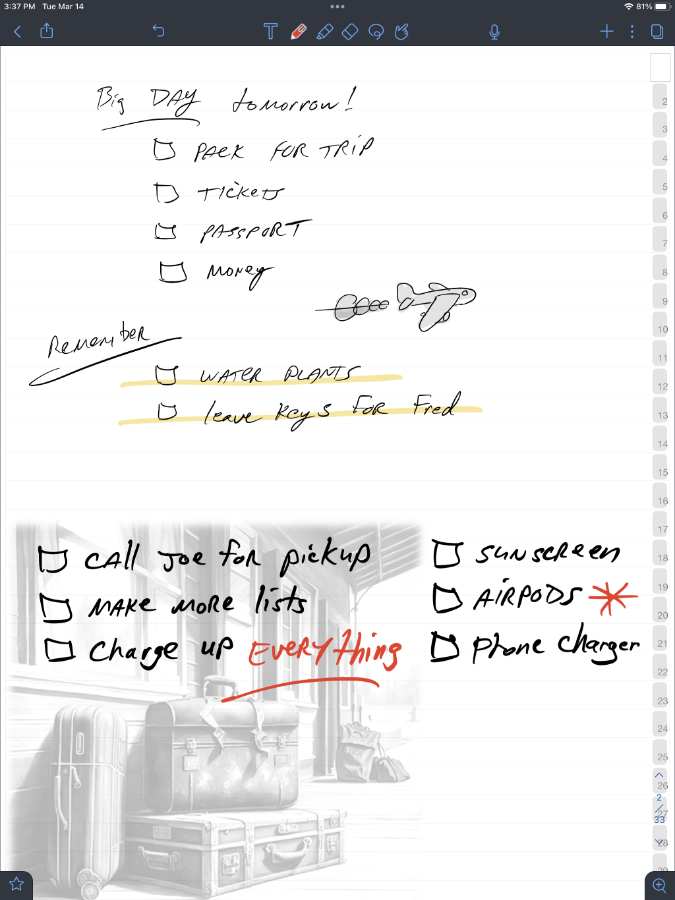 3:37 PM Tue Mar 14
81%
Big DAY tomorrow!
PACK FOR TRIP
TICKETS
PASSPORT
MONEY
Remember
WATER PLANTS
leave keys FOR Fred
CALL JOE for pickup
MAKE MORE lists
Charge up EVERYthing
SUNSCREEN
AIRPODS
Phone charger
2
3
4
5
6
7
8
9
10
11
12
13
14
15
16
17
18
19
20
21
22
23
24
25
26
27
28
2
/
33